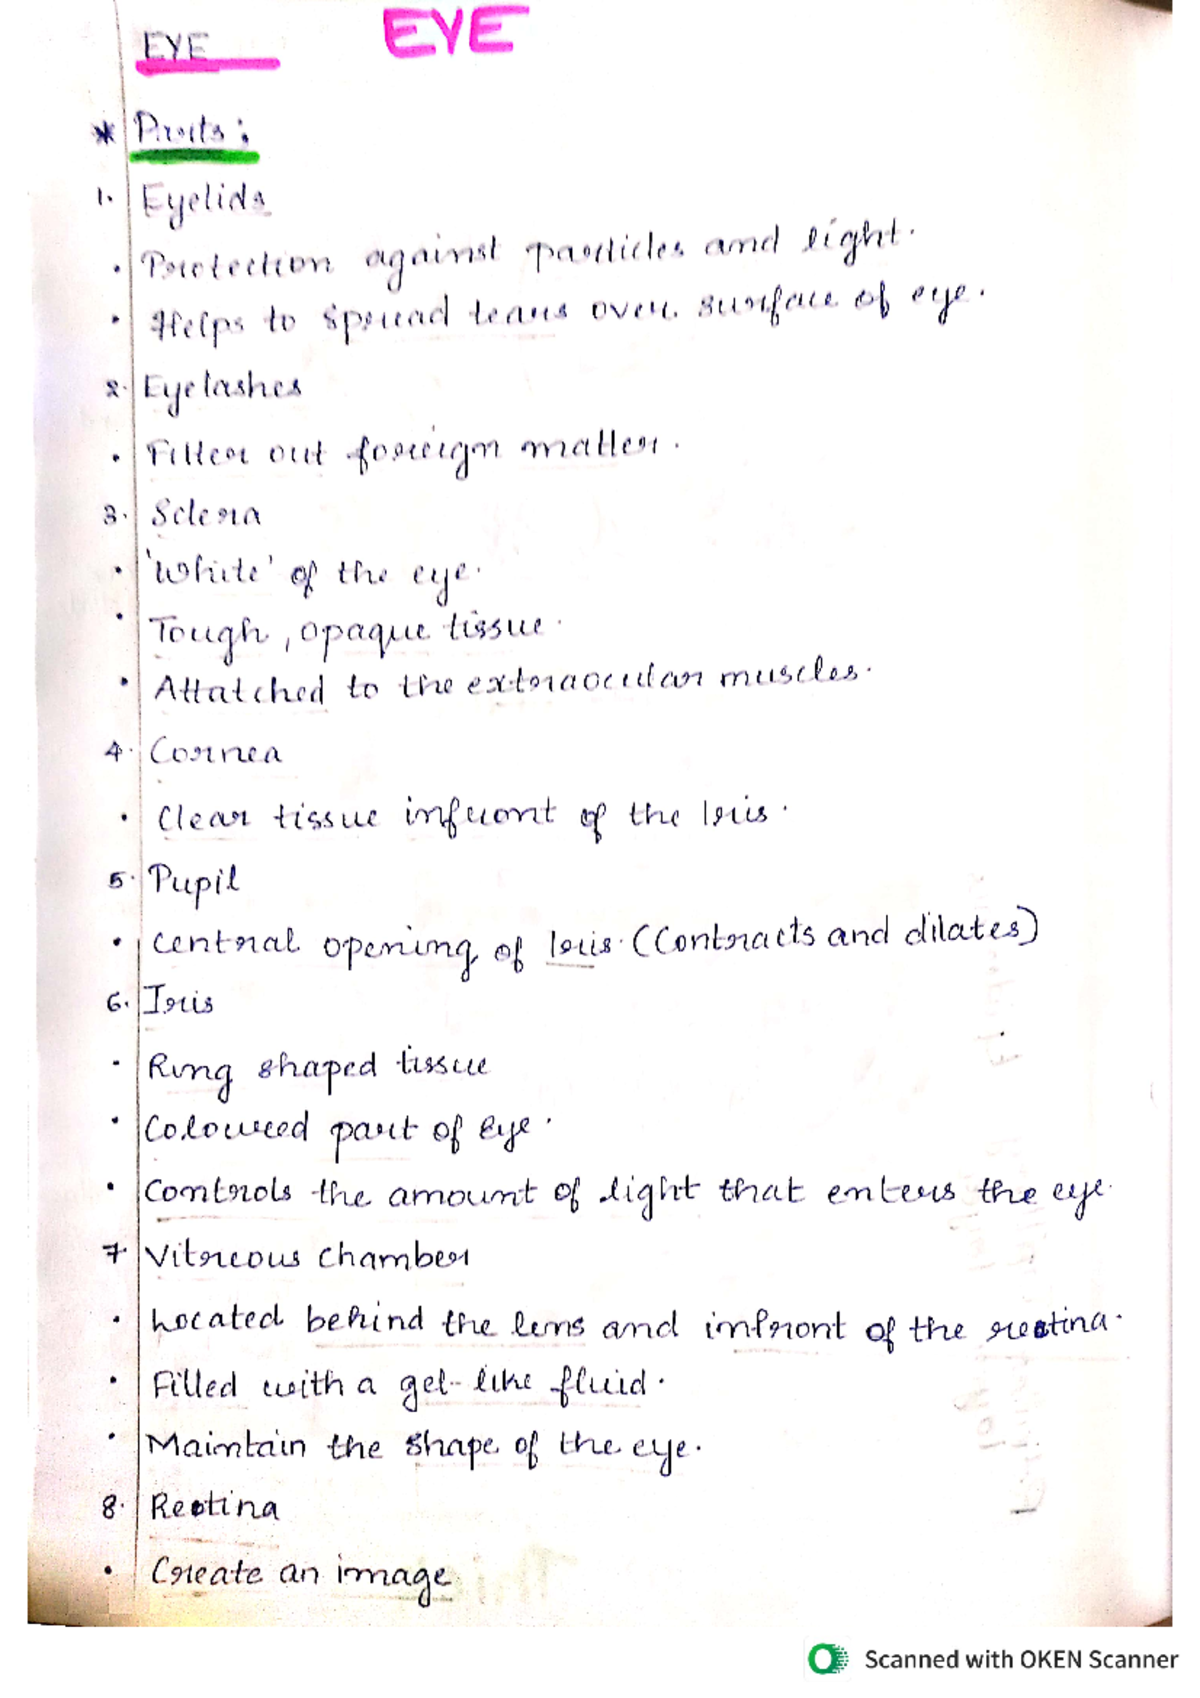 EYE EYE
* Parts :
1. Eyelids
• Protection against particles and light.
• Helps to spread tears over surface of eye.
2. Eyelashes
• Filter out foreign matter.
3. Sclera
• 'White' of the eye.
• Tough, opaque tissue.
• Attatched to the extraocular muscles.
4. Cornea
• Clear tissue infront of the Iris.
5. Pupil
• Central opening of Iris. (Contracts and dilates)
6. Iris
• Ring shaped tissue
• Coloured part of Eye.
• Controls the amount of light that enters the eye.
7. Vitreous chamber
• Located behind the lens and infront of the reatina.
• Filled with a gel-like fluid.
• Maintain the shape of the eye.
8. Reatina
• Create an image
Scanned with OKEN Scanner